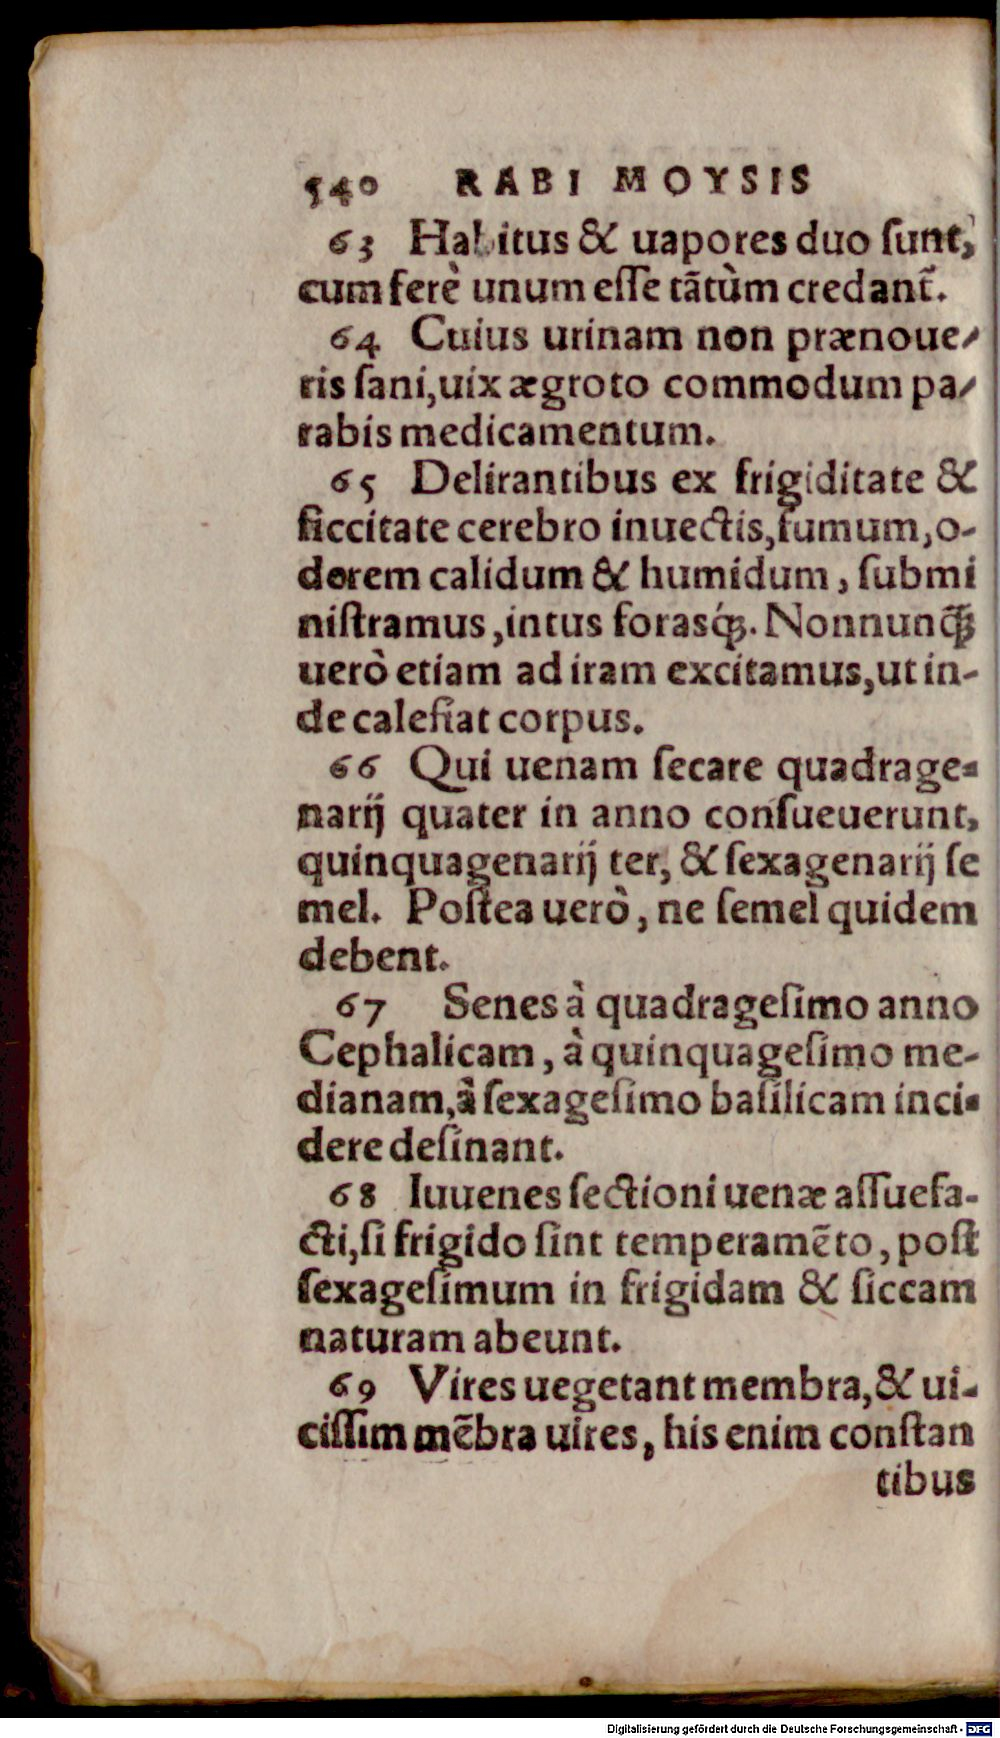 540 RABI MOYSIS
63 Halitus & uapores duo ſunt,
cum ferè unum eſſe tãtùm credant̃.
64 Cuius urinam non prænoue-
ris ſani, uix ægroto commodum pa-
rabis medicamentum.
65 Delirantibus ex frigiditate &
ſiccitate cerebro inuectis, fumum, o-
dorem calidum & humidum, ſubmi
niſtramus, intus forasq́ꝫ. Nonnunq̃ꝫ
uerò etiam ad iram excitamus, ut in-
de calefiat corpus.
66 Qui uenam ſecare quadrage-
narij quater in anno conſueuerunt,
quinquagenarij ter, & ſexagenarij ſe
mel. Poſtea uerò, ne ſemel quidem
debent.
67 Senes à quadrageſimo anno
Cephalicam, à quinquageſimo me-
dianam, à ſexageſimo baſilicam inci-
dere deſinant.
68 Iuuenes ſectioni uenæ aſſuefa-
cti, ſi frigido ſint temperamẽto, poſt
ſexageſimum in frigidam & ſiccam
naturam abeunt.
69 Vires uegetant membra, & ui-
ciſſim mẽbra uires, his enim conſtan
tibus
Digitalisierung gefördert durch die Deutsche Forschungsgemeinschaft - DFG